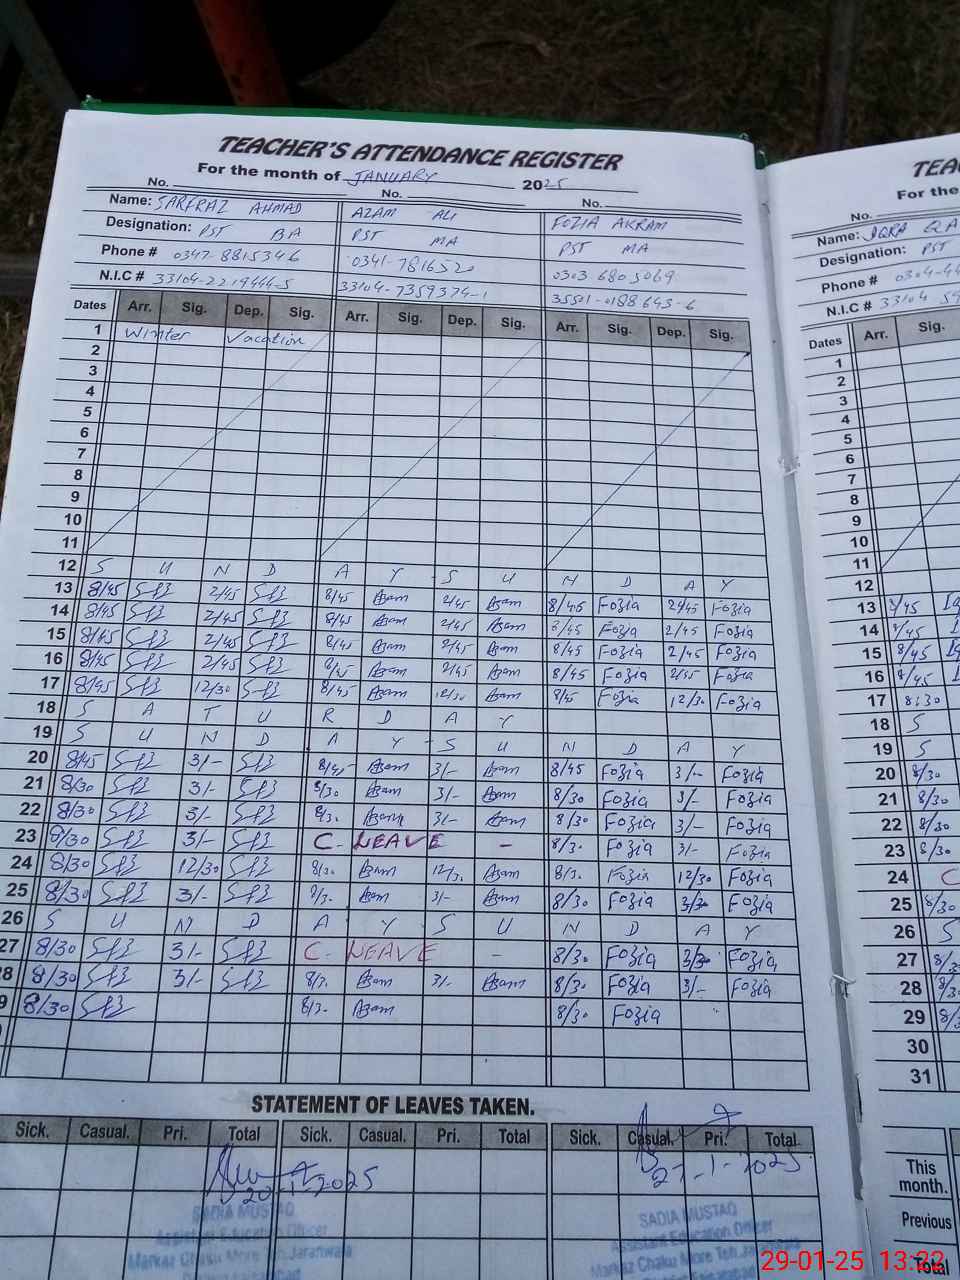 TEACHER'S ATTENDANCE REGISTER
For the month of JANUARY 2025
No. No. No.
Name: SARFRAZ AHMAD AZAM ALI FOZIA AKRAM
Designation: PST BA PST MA PST MA
Phone # 0347-8815346 0341-7816520 0303 6805069
N.I.C # 33104-2219444-5 33104-7359374-1 35501-0188643-6
Dates Arr. Sig. Dep. Sig. Arr. Sig. Dep. Sig. Arr. Sig. Dep. Sig.
1 Winter Vacation
2
3
4
5
6
7
8
9
10
11
12 S U N D A Y - S U N D A Y
13 8/45 2/45 8/45 Azam 2/45 Azam 8/45 Fozia 2/45 Fozia
14 8/45 2/45 8/45 Azam 2/45 Azam 8/45 Fozia 2/45 Fozia
15 8/45 2/45 8/45 Azam 2/45 Azam 8/45 Fozia 2/45 Fozia
16 8/45 2/45 8/45 Azam 2/45 Azam 8/45 Fozia 2/45 Fozia
17 8/45 12/30 8/45 Azam 12/30 Azam 8/45 Fozia 12/30 Fozia
18 S A T U R D A Y
19 S U N D A Y - S U N D A Y
20 8/45 3/- 8/45 Azam 3/- Azam 8/45 Fozia 3/- Fozia
21 8/30 3/- 8/30 Azam 3/- Azam 8/30 Fozia 3/- Fozia
22 8/30 3/- 8/30 Azam 3/- Azam 8/30 Fozia 3/- Fozia
23 8/30 3/- C- LEAVE - 8/30 Fozia 3/- Fozia
24 8/30 12/30 8/30 Azam 12/30 Azam 8/30 Fozia 12/30 Fozia
25 8/30 3/- 8/30 Azam 3/- Azam 8/30 Fozia Fozia
26 S U N D A Y S U N D A Y
27 8/30 3/- C- LEAVE - 8/30 Fozia Fozia
28 8/30 3/- 8/30 Azam 3/- Azam 8/30 Fozia 3/- Fozia
9 8/30 8/30 Azam 8/30 Fozia
STATEMENT OF LEAVES TAKEN.
Sick. Casual. Pri. Total Sick. Casual. Pri. Total Sick. Casual. Pri. Total
20-1-2025
27-1-2025
SADIA MUSTAQ
Assistant Education Officer
Markaz Chaku More Teh. Jaranwala
SADIA MUSTAQ
Assistant Education Officer
Markaz Chaku More Teh. Jaranwala
TEA
For the
No.
Name: IQRA QA
Designation: PST
Phone # 0304-44
N.I.C # 33104 59
Dates Arr. Sig.
1
2
3
4
5
6
7
8
9
10
11
12
13
14
15 8/45
16 8/45
17 8:30
18 S
19 S
20 8/30
21 8/30
22 8/30
23 8/30
24 C
25 8/30
26 S
27 8/3
28 8/30
29 8/3
30
31
This
month.
Previous
Total
29-01-25 13:22